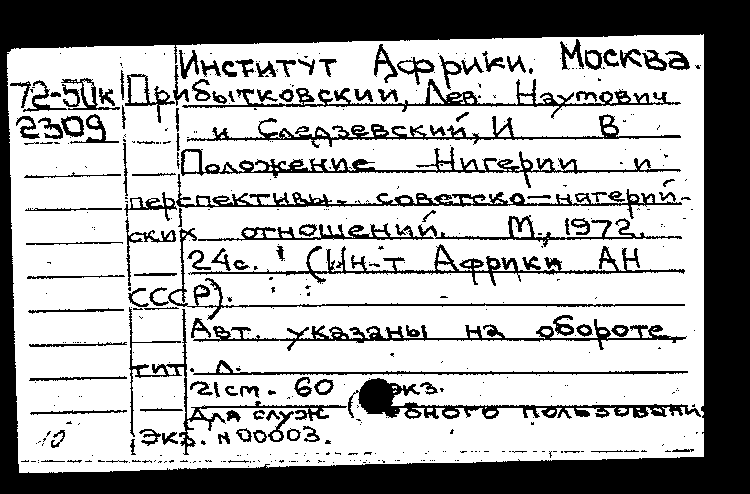 Институт Африки. Москва.
72-50к Прибытковский, Лев Наумович
2309 и Следзевский, И В
Положение Нигерии и
перспективы советско-нигерий-
ских отношений. М., 1972.
24с. (Ин-т Африки АН
СССР).
Авт. указаны на обороте
тит. л.
21см. 60 экз.
Для служебного пользования
10 Экз. N 00003.